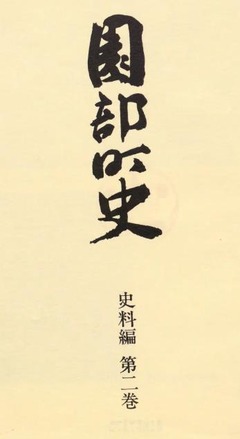 園部町史
史料編 第二巻